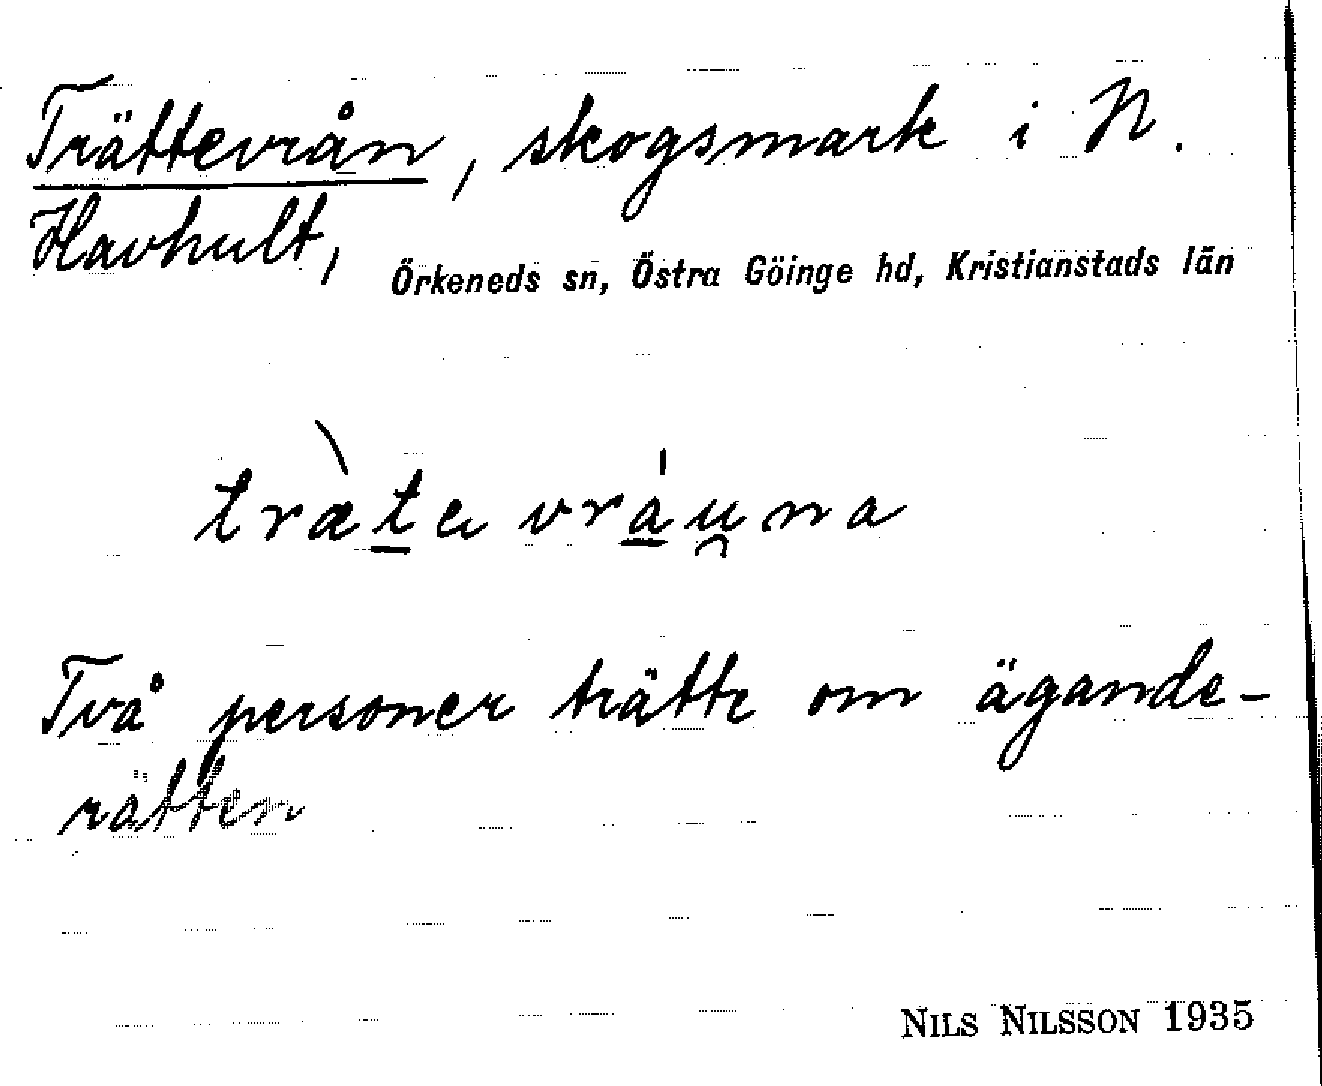 Trättevrån, skogsmark i N.
Havhult, Örkeneds sn, Östra Göinge hd, Kristianstads län
træ̀ta vráu̯na
Två personer trätte om ägande-
rätten
NILS NILSSON 1935